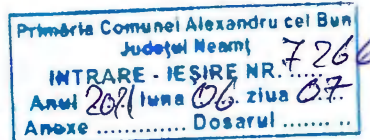 Primăria Comunei Alexandru cel Bun
Județul Neamț
INTRARE - IEȘIRE NR. 726
Anul 2021 luna 06. ziua 07.
Anexe ............ Dosarul ....... ..